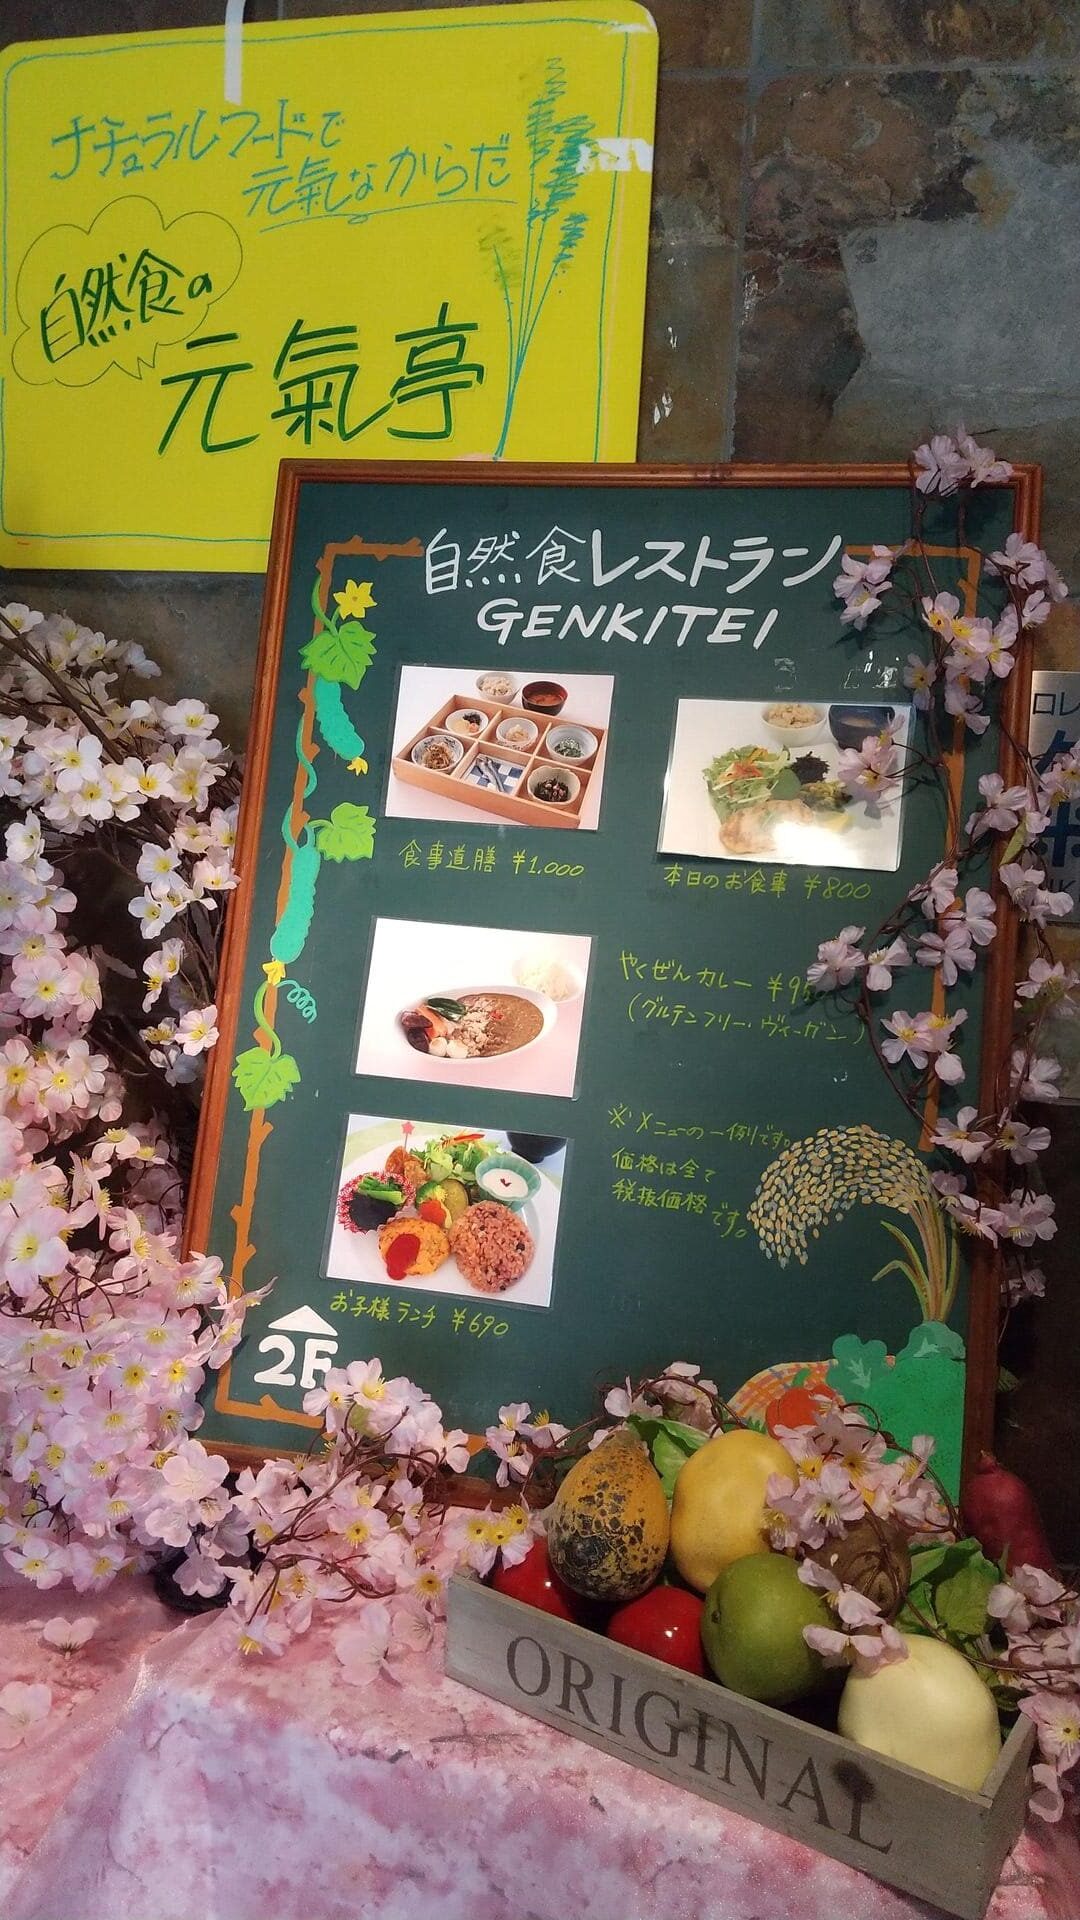 ナチュラルフードで
元氣なからだ
自然食の
元氣亭
自然食レストラン
GENKITEI
食事道膳 ¥1,000
本日のお食事 ¥800
やくぜんカレー
(グルテンフリー・ヴィーガン)
※メニューの一例です。
価格は全て
税抜価格です。
お子様ランチ ¥690
2F
ORIGINAL